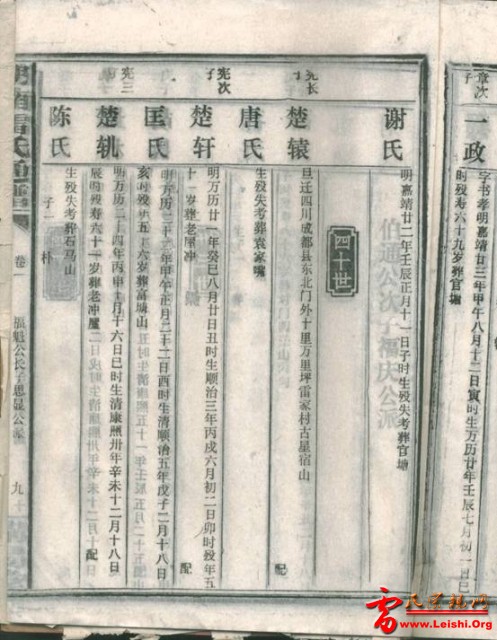 章次子
一政
字书孝明嘉靖廿三年甲午八月十二日寅时生万历廿年壬辰七月初一日巳
时殁寿六十九岁葬官塘
谢氏
明嘉靖廿二年壬辰正月十一日子时生殁失考葬官塘
四十世
宪长子
楚辕
旦迁四川成都县东北门外十里万里坪雷家村古星宿山
配
唐氏
生殁失考葬袁家嘴
宪次子
楚轩
明万历廿一年癸巳八月廿日丑时生顺治三年丙戌六月初二日卯时殁年五
十一岁葬老屋冲
配
匡氏
明万历二十二年甲午正月二十二日酉时生清顺治五年戊子二月十八日
亥时殁五十六岁葬富塘山
宪三子
楚轨
明万历二十四年丙申十月十六日巳时生清康熙卅年辛未十二月十八日
辰时殁寿六十一岁葬老冲屋
配
陈氏
生殁失考葬石马山
子一
朴
雷氏
卷一
福魁公长子思显公派
九十
雷氏宗亲网
www.Leishi.Org